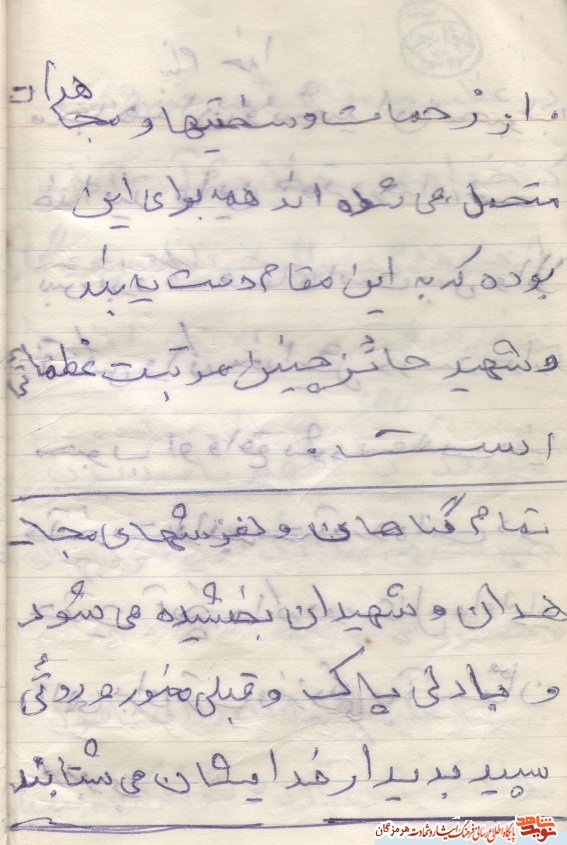 . از زحمات و سختیها و مجاهدات
متحمل می شده اند همه برای این
بوده که به این مقام دست یابند
و شهید حائز چنین مرتبت عظمائی
است .
تمام گناهان و لغزشهای مجا-
هدان و شهیدان بخشیده می شود
و با دلی پاک و قبلی منور و روئی
سپید بدیدار خدایشان می شتابند
نوید شاهد
پایگاه اطلاع رسانی فرهنگ ایثار و شهادت هرمزگان